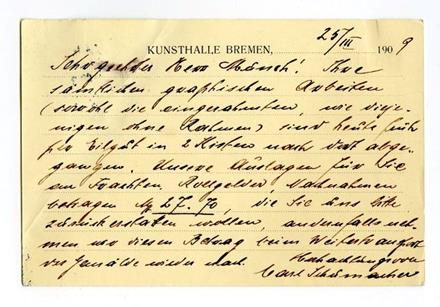 KUNSTHALLE BREMEN, 25/III 1909
Sehr geehrter Herr Munch! Ihre
sämtlichen graphischen Arbeiten
(sowohl die eingerahmten, wie dieje-
nigen ohne Rahmen) sind heute früh
per Eilgut in 2 Kisten nach dort abge-
gangen. Unsere Auslagen für Sie
an Frachten, Rollgelder, Nachnahmen
betragen M 27.70, die Sie uns bitte
zurückerstatten wollen, andernfalls neh-
men wir diesen Betrag beim
der Gemälde wieder nach. Hochachtungsvoll
Carl Schümacher